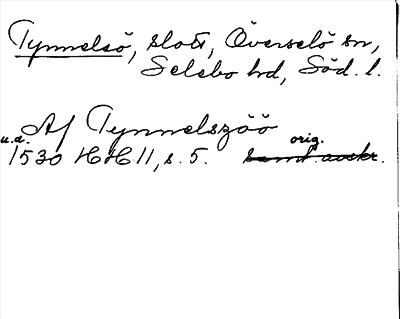 Tynnelsö, slott, Överselö sn,
Selebo hd, Söd. l.
Af Tynnelszöö
u.d. orig.
1530 HH II, s. 5. samt. avskr.